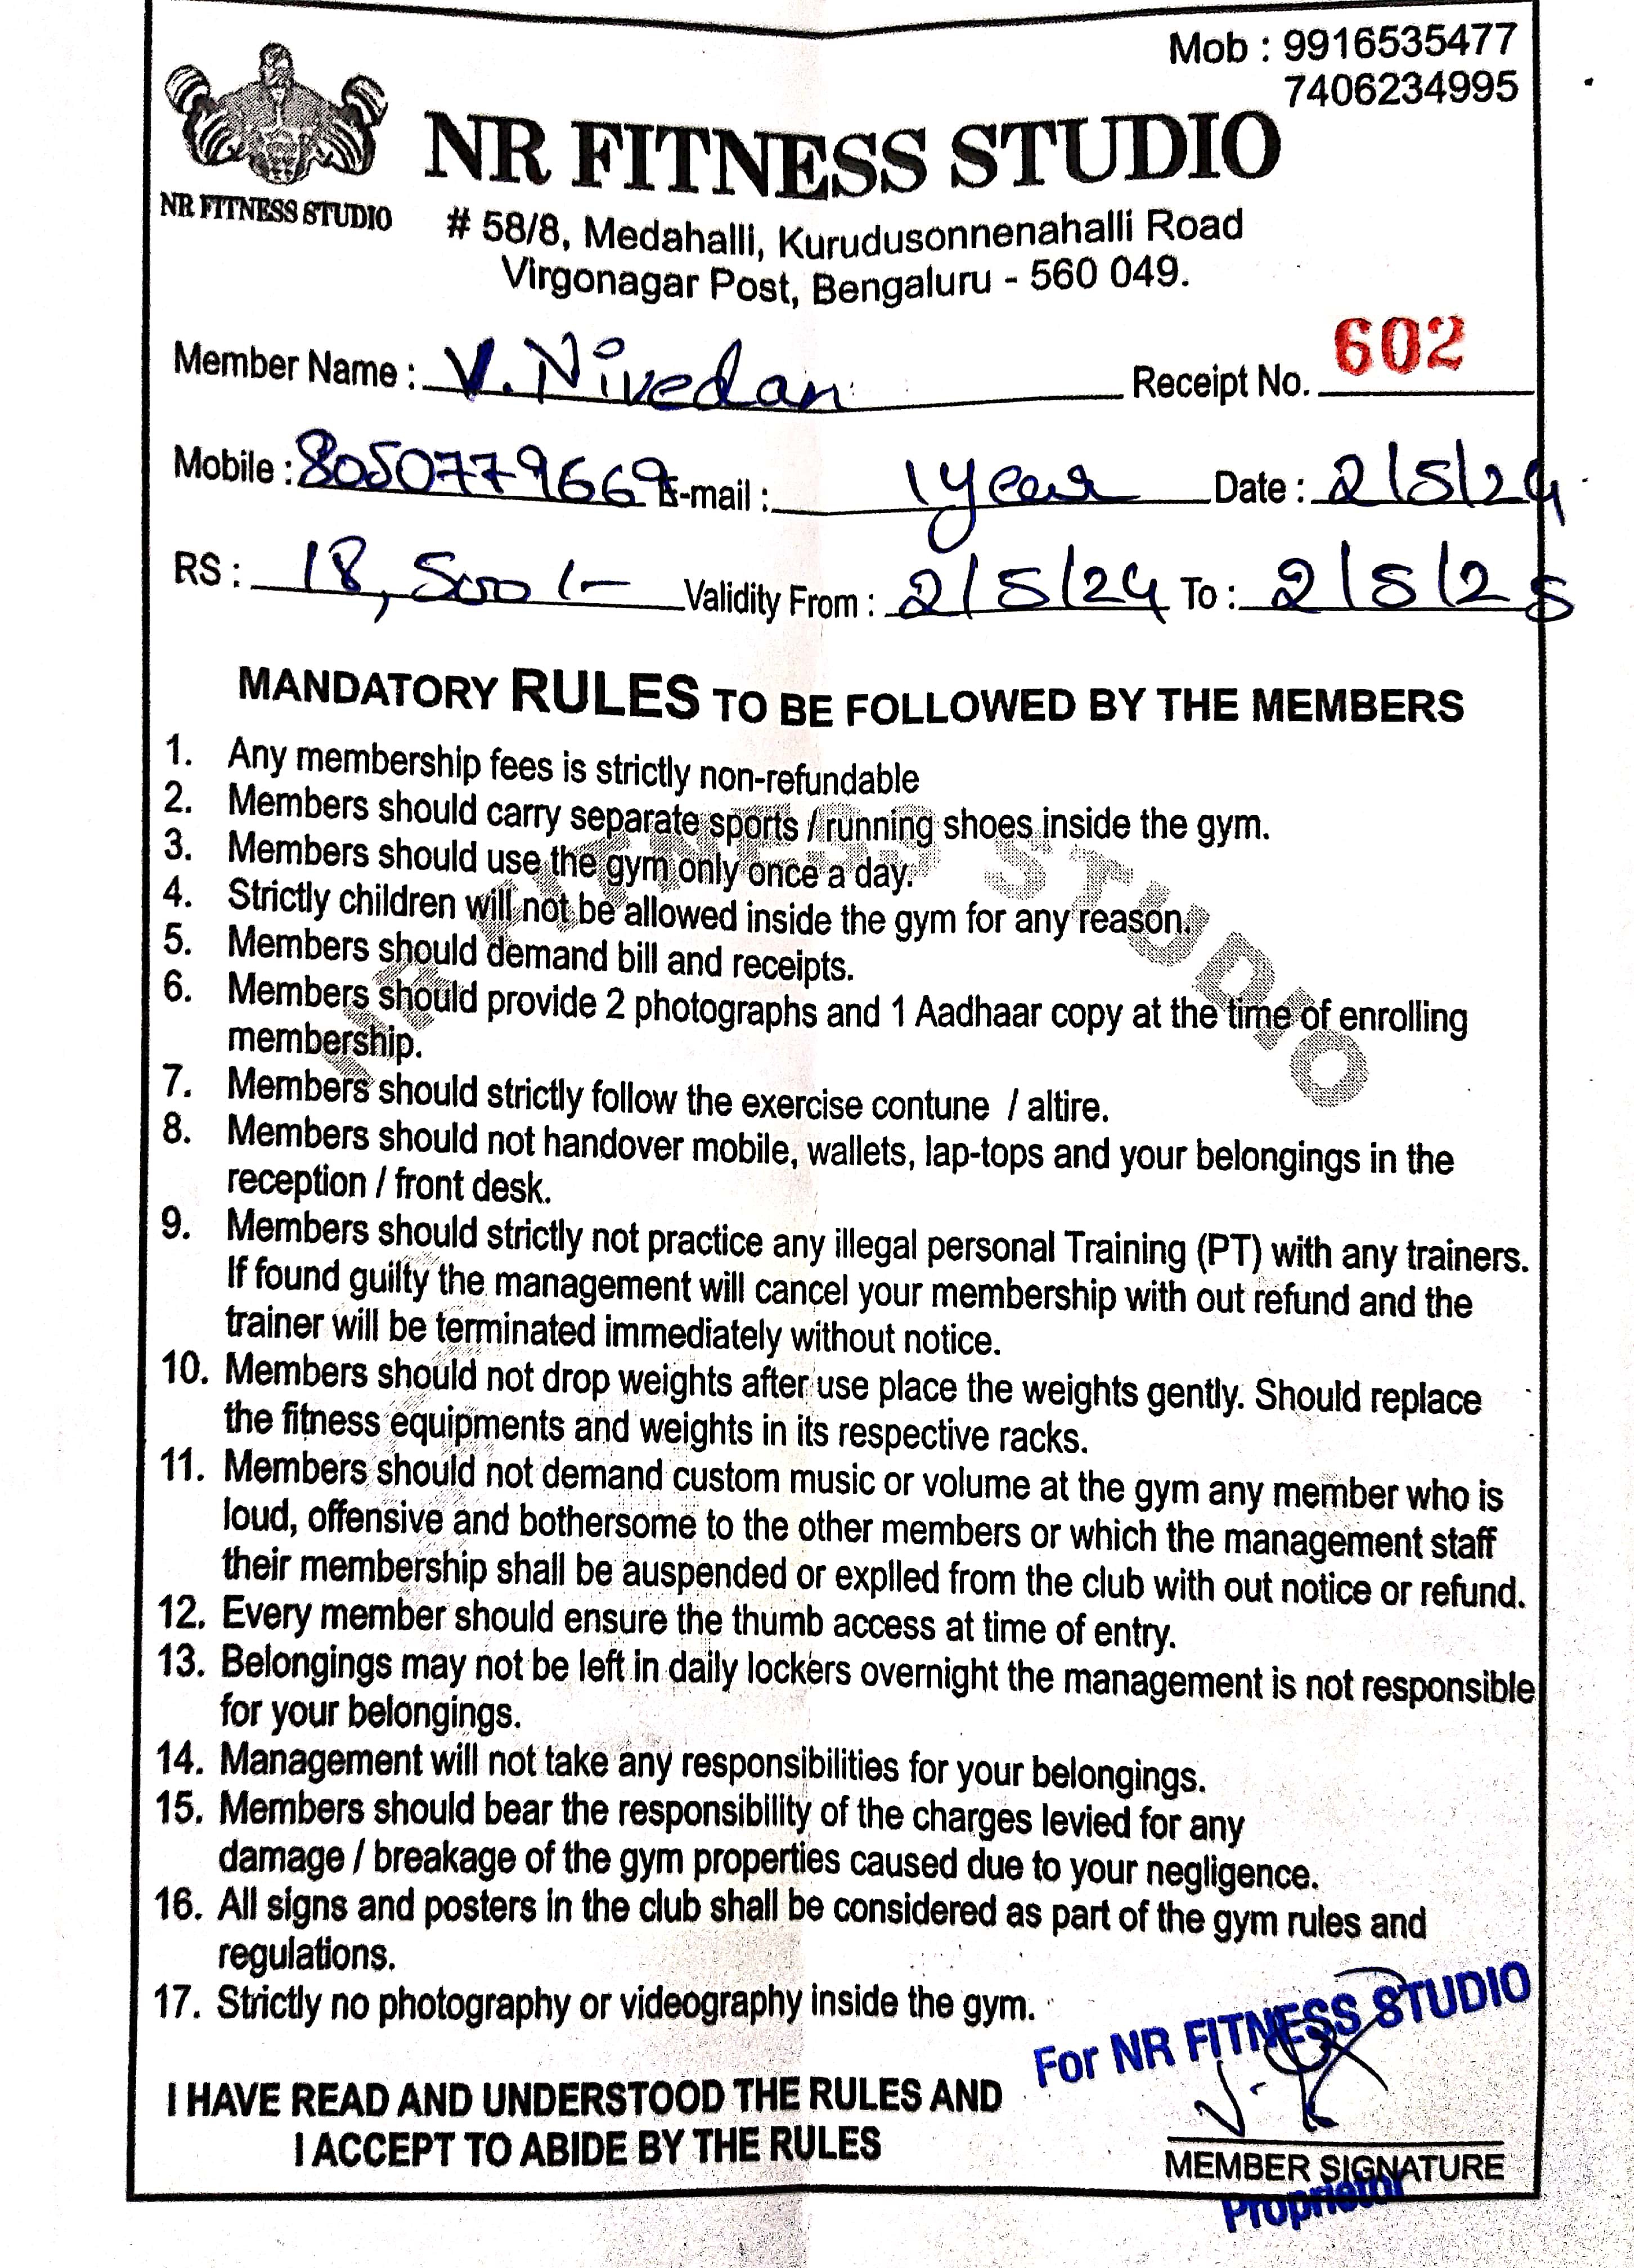 Mob : 9916535477
7406234995
NR FITNESS STUDIO
NR FITNESS STUDIO
# 58/8, Medahalli, Kurudusonnenahalli Road
Virgonagar Post, Bengaluru - 560 049.
Member Name : V. Nivedan Receipt No. 602
Mobile : 8050779669 E-mail : 1 year Date : 2/5/24
RS : 18,500/- Validity From : 2/5/24 To : 2/5/25
MANDATORY RULES TO BE FOLLOWED BY THE MEMBERS
1. Any membership fees is strictly non-refundable
2. Members should carry separate sports / running shoes inside the gym.
3. Members should use the gym only once a day.
4. Strictly children will not be allowed inside the gym for any reason.
5. Members should demand bill and receipts.
6. Members should provide 2 photographs and 1 Aadhaar copy at the time of enrolling
membership.
7. Members should strictly follow the exercise contune / altire.
8. Members should not handover mobile, wallets, lap-tops and your belongings in the
reception / front desk.
9. Members should strictly not practice any illegal personal Training (PT) with any trainers.
If found guilty the management will cancel your membership with out refund and the
trainer will be terminated immediately without notice.
10. Members should not drop weights after use place the weights gently. Should replace
the fitness equipments and weights in its respective racks.
11. Members should not demand custom music or volume at the gym any member who is
loud, offensive and bothersome to the other members or which the management staff
their membership shall be auspended or explled from the club with out notice or refund.
12. Every member should ensure the thumb access at time of entry.
13. Belongings may not be left in daily lockers overnight the management is not responsible
for your belongings.
14. Management will not take any responsibilities for your belongings.
15. Members should bear the responsibility of the charges levied for any
damage / breakage of the gym properties caused due to your negligence.
16. All signs and posters in the club shall be considered as part of the gym rules and
regulations.
17. Strictly no photography or videography inside the gym.
NR FITNESS STUDIO
For NR FITNESS STUDIO
I HAVE READ AND UNDERSTOOD THE RULES AND
I ACCEPT TO ABIDE BY THE RULES
MEMBER SIGNATURE
Proprietor